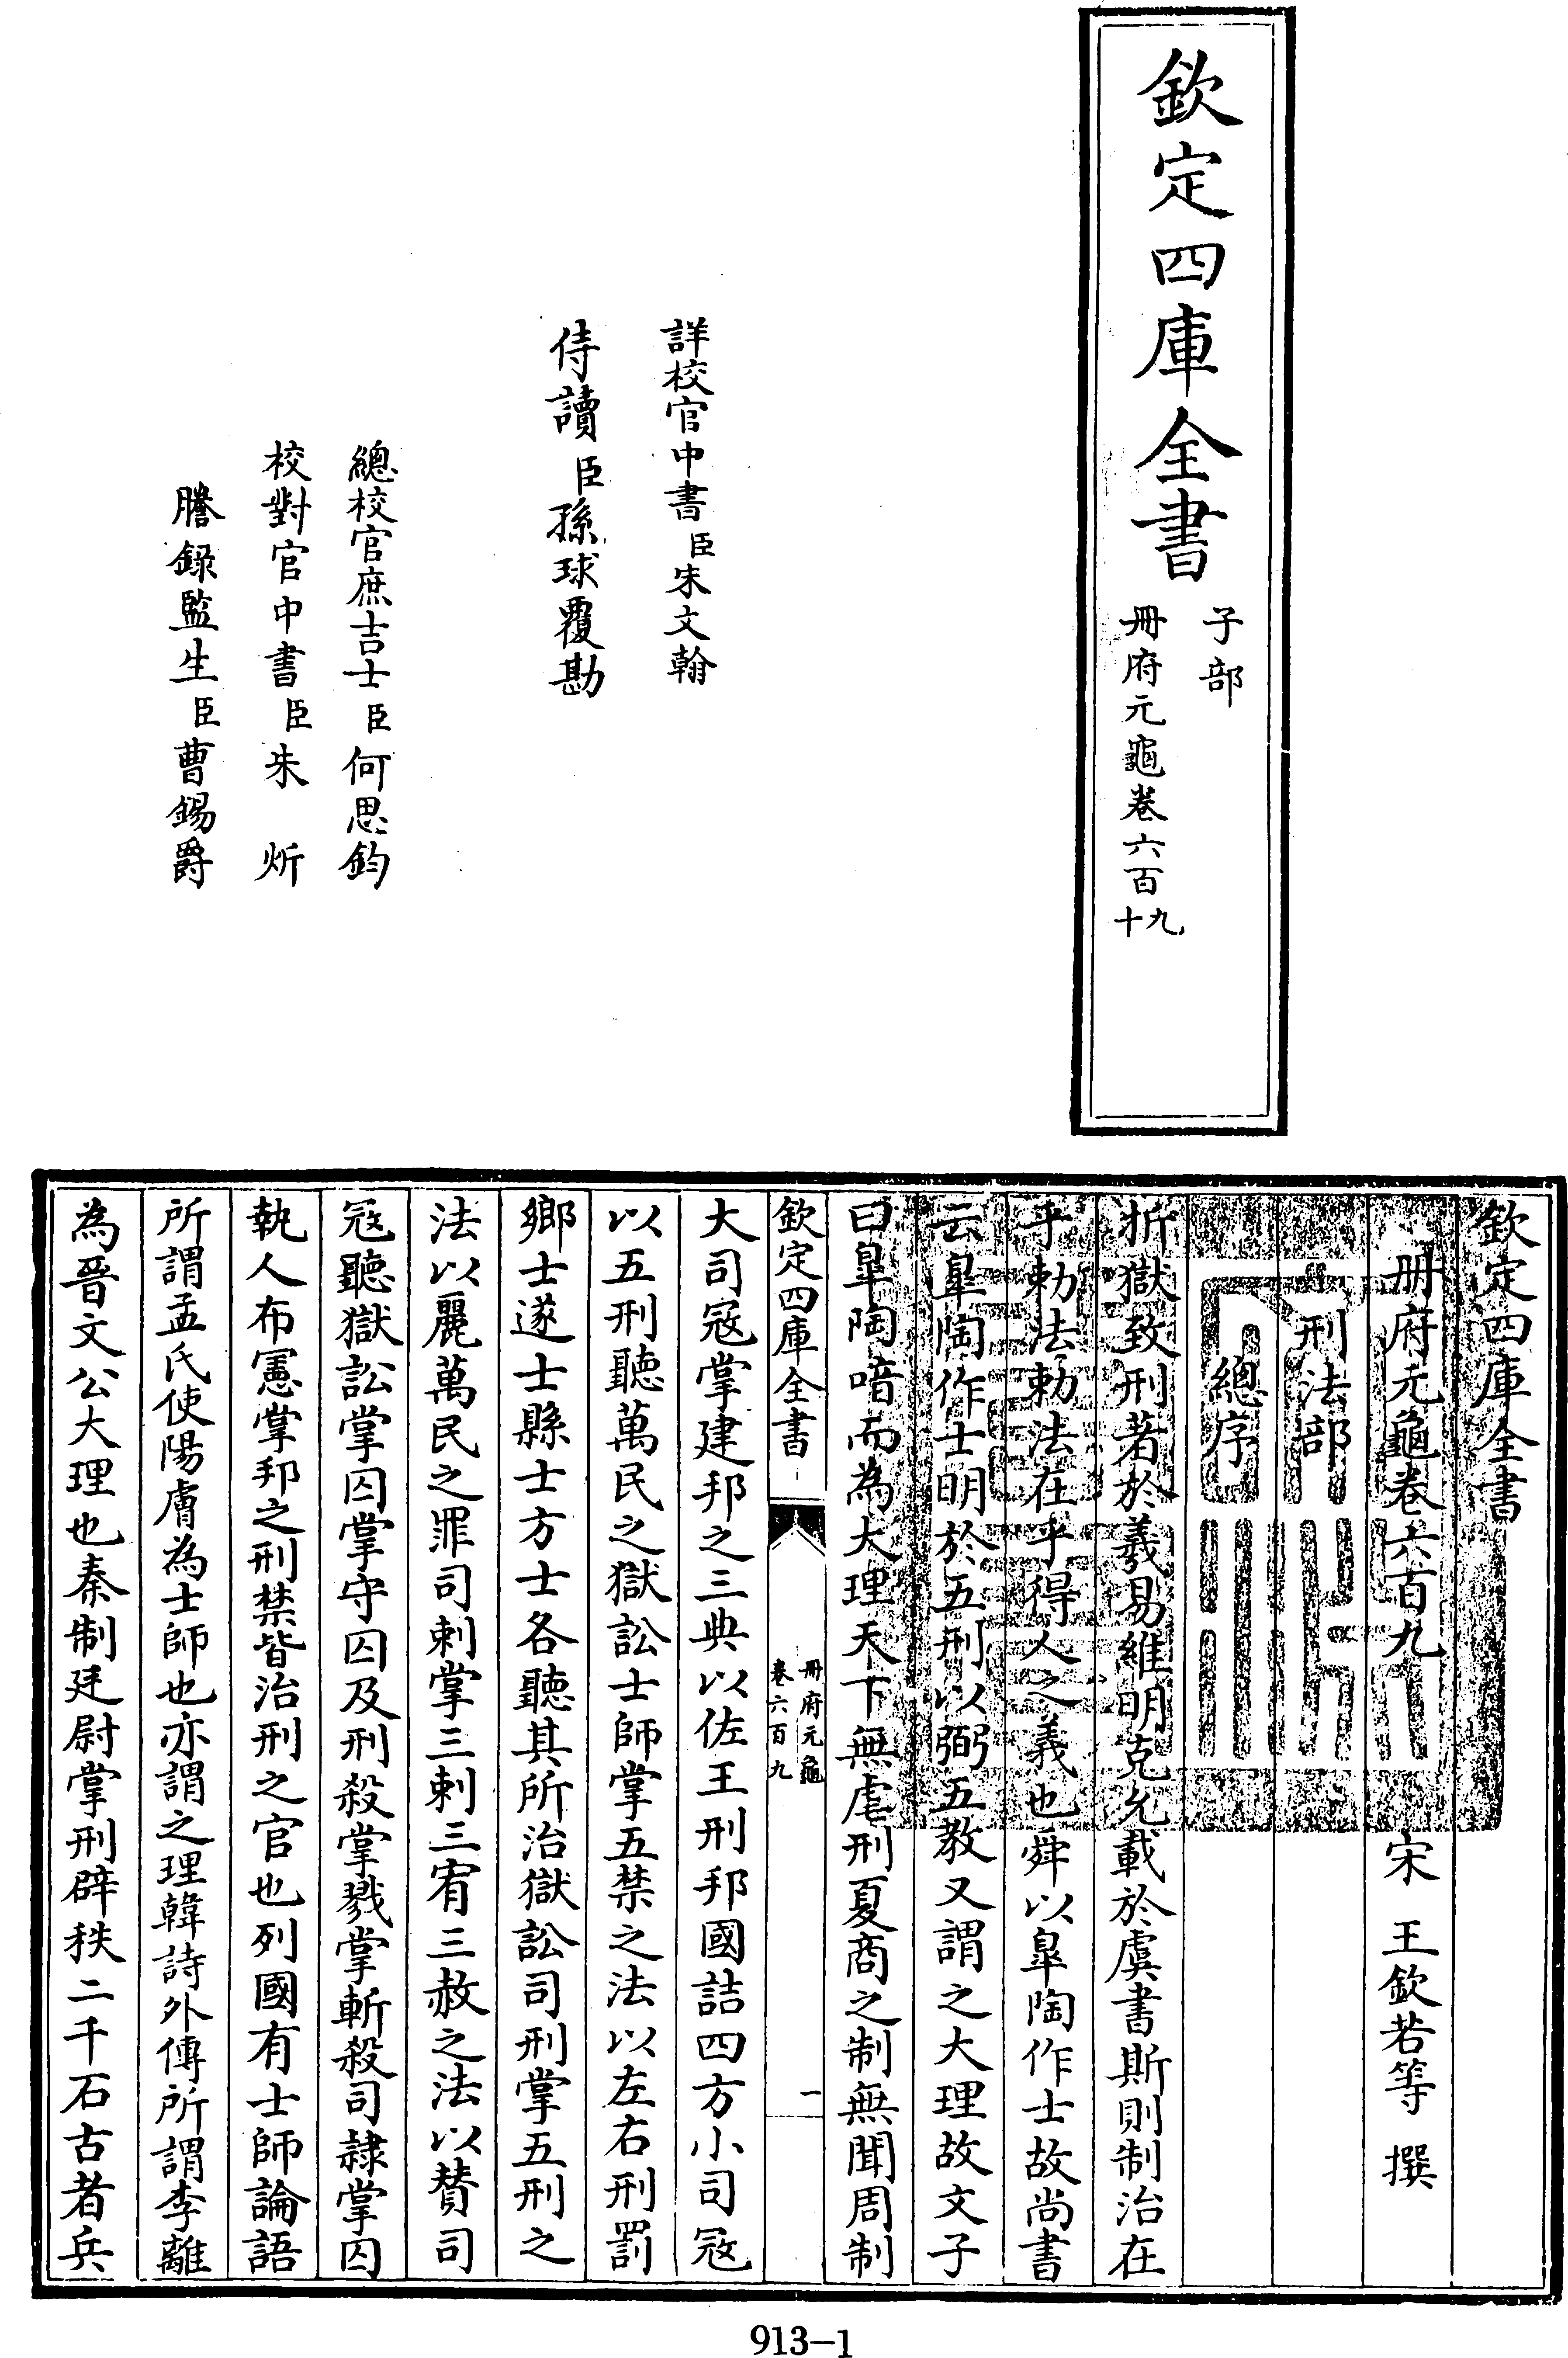 欽定四庫全書
子部
冊府元龜卷六百九十
詳校官中書臣朱文翰
侍讀臣孫球覆勘
總校官庶吉士臣何思鈞
校對官中書臣朱炘
謄錄監生臣曹錫爵
欽定四庫全書
冊府元龜卷六百九
宋 王欽若等 撰
刑法部
總序
折獄致刑著於羲易維明克允載於虞書斯則制治在
乎勅法勅法在乎得人之義也舜以臯陶作士故尚書
云臯陶作士明於五刑以弼五教又謂之大理故文子
曰臯陶喑而為大理天下無虐刑夏商之制無聞周制
欽定四庫全書
冊府元龜
卷六百九
一
大司寇掌建邦之三典以佐王刑邦國詰四方小司寇
以五刑聽萬民之獄訟士師掌五禁之法以左右刑罰
鄉士遂士縣士方士各聽其所治獄訟司刑掌五刑之
法以麗萬民之罪司刺掌三刺三宥三赦之法以贊司
寇聽獄訟掌囚掌守囚及刑殺掌戮掌斬殺司隸掌囚
執人布憲掌邦之刑禁皆治刑之官也列國有士師論語
所謂孟氏使陽膚為士師也亦謂之理韓詩外傳所謂李離
為晉文公大理也秦制廷尉掌刑辟秩二千石古者兵
913-1